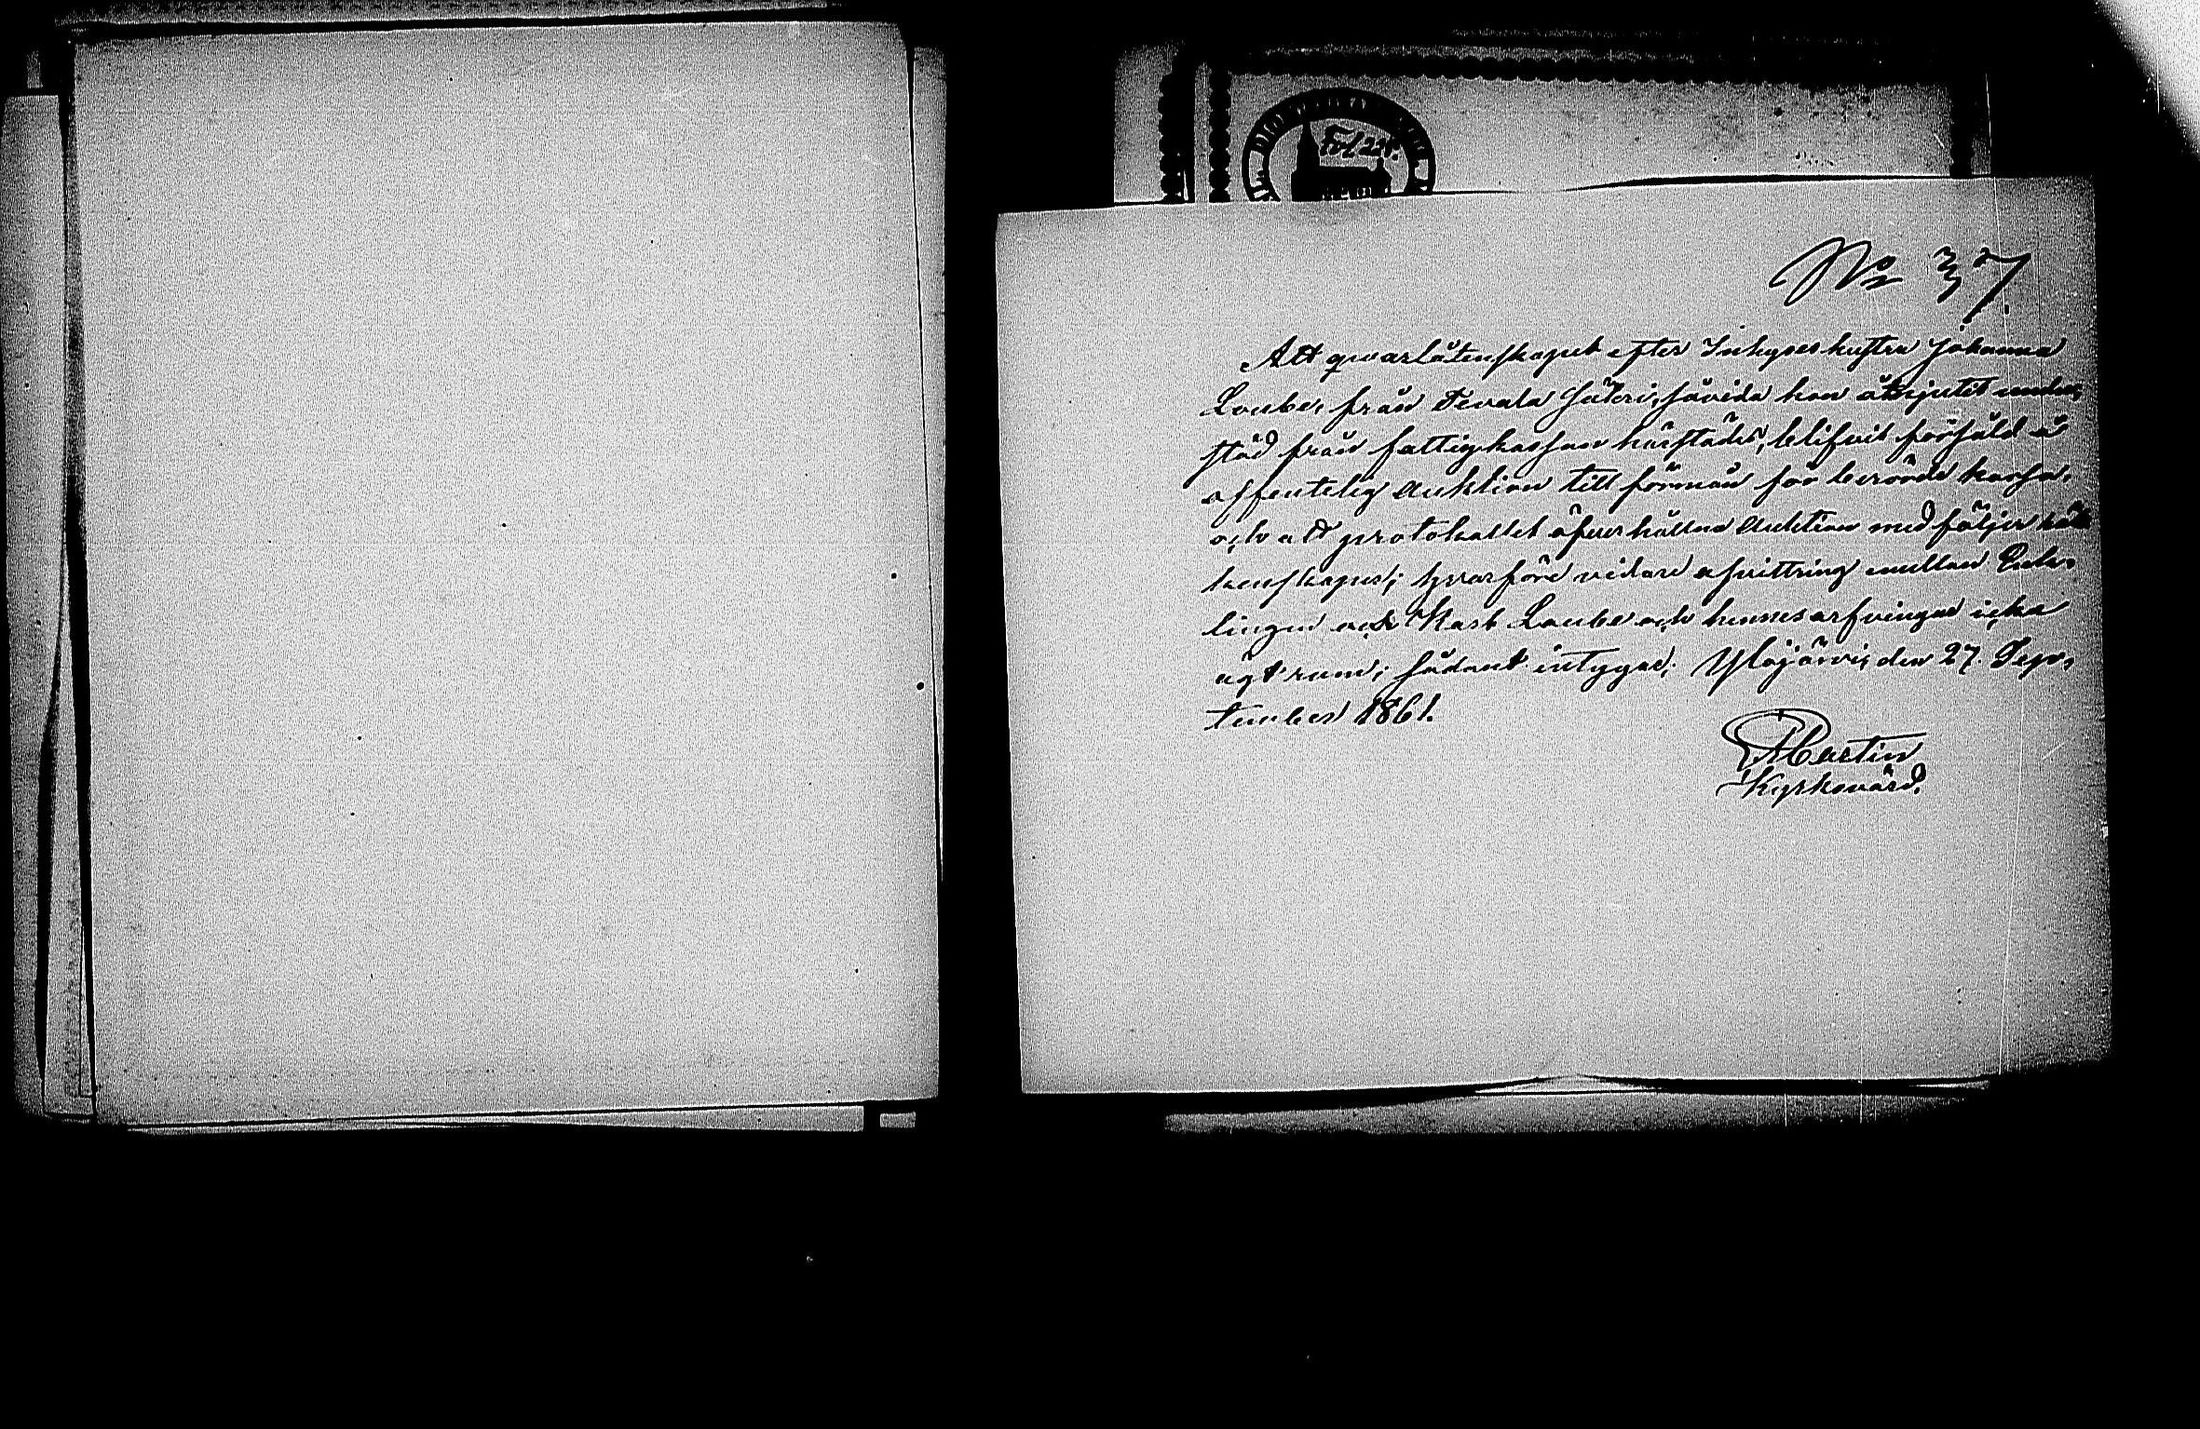 Fol 221.
No 37.
Att qvarlåtenskapet efter Inhyses hustru Johanna
Loube, från Tevala Säteri, såvida hon åtnjutit under,
stöd från fattigkassan härstädes, blifvit försåld å
offentelig Auktion till förmån för berörde kassa,
och att protokollet öfver hållna Auktion medföljer räk
kenskapen; hvarföre vidare afvittring mellan Enk,
lingen och Loube och hennes arfvingar icke
ägt rum; sådant intygar; Ylöjärvi, den 27. Sep,
tember 1861.
Martin
Kyrkovärd.